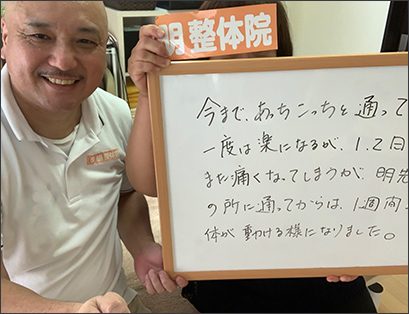 明整体院
今まで、あっちこっちと通って
一度は楽になるが、1.2日
また痛くなってしまうが、明先
の所に通ってからは、1週間
体が動ける様になりました。